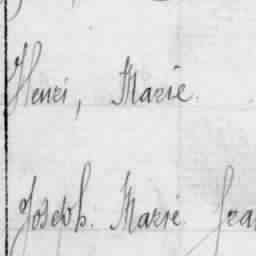 Henri, Marie.
Joseph. Marie